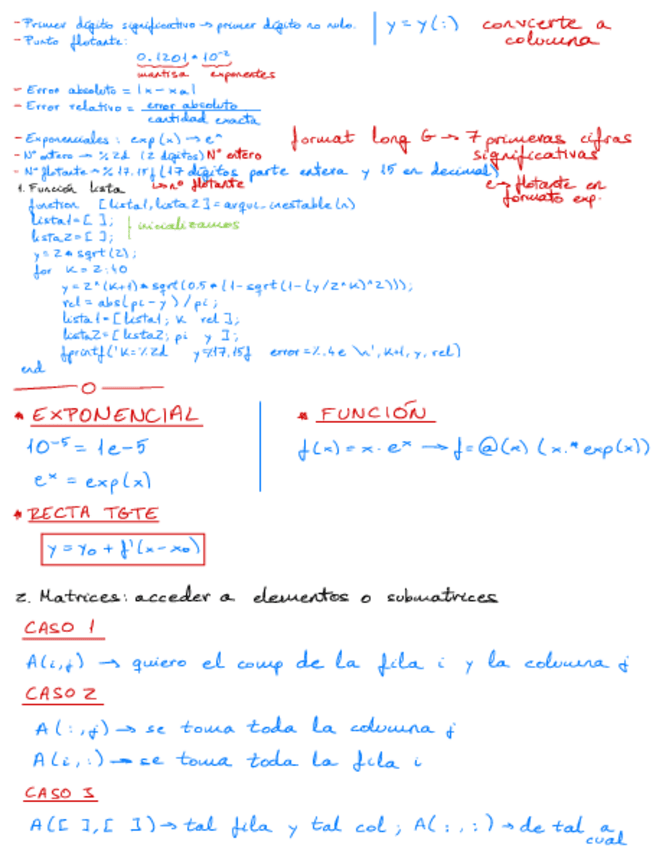 - Primer dígito significativo → primer dígito no nulo.
- Punto flotante:
0.1201 * 10^-2
mantisa exponentes
y = y(:) convierte a
columna
- Error absoluto = |x - xa|
- Error relativo = error absoluto
cantidad exacta
- Exponenciales: exp(x) → e^x
format long G → 7 primeras cifras
significativas
- Nº entero → %2d (2 dígitos) Nº entero
- Nº flotante → %17.15f (17 dígitos parte entera y 15 en decimal)
↳ nº flotante
e → flotante en
formato exp.
1. Función lista
function [lista1, lista2] = arqui_inestable(n)
lista1=[ ];
lista2=[ ];
inicializamos
y=2*sqrt(2);
for k=2:40
y=2^(k+1)*sqrt(0.5*(1-sqrt(1-(y/2^k)^2)));
rel = abs(pi-y)/pi;
lista1=[lista1; k rel];
lista2=[lista2; pi y];
fprintf('k=%2d y=%17.15f error=%.4e \n', k+1, y, rel)
end
* EXPONENCIAL
10^-5 = 1e-5
e^x = exp(x)
* FUNCIÓN
f(x) = x · e^x → f=@(x) (x.*exp(x))
* RECTA TGTE
y = y0 + f'(x-x0)
2. Matrices: acceder a elementos o submatrices
CASO 1
A(i,j) → quiero el comp de la fila i y la columna j
CASO 2
A(:,j) → se toma toda la columna j
A(i,:) → se toma toda la fila i
CASO 3
A([ ],[ ]) → tal fila y tal col; A(:,:) → de tal a
cual